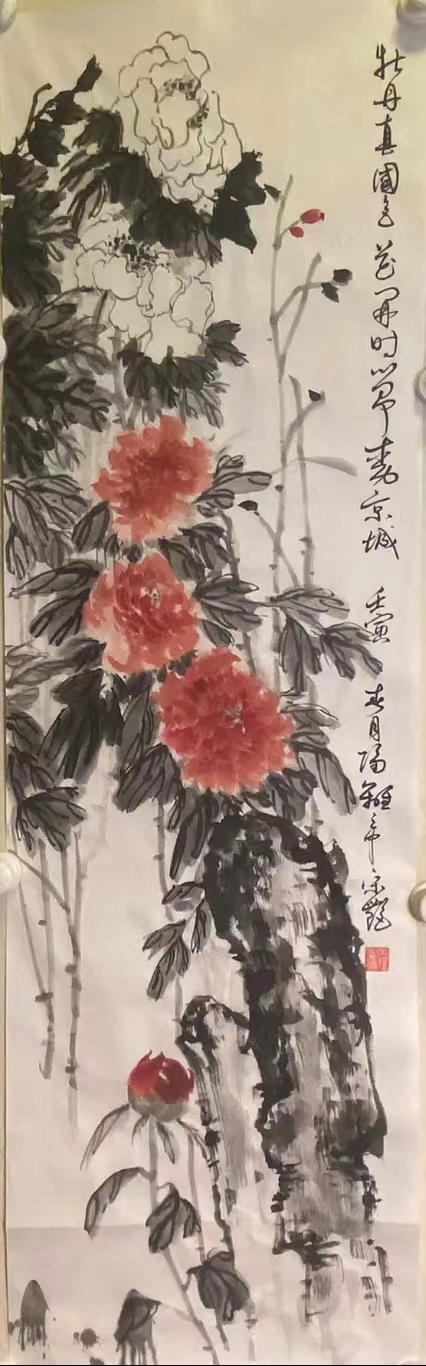 牡丹真国色花开时节动京城 壬寅 春月